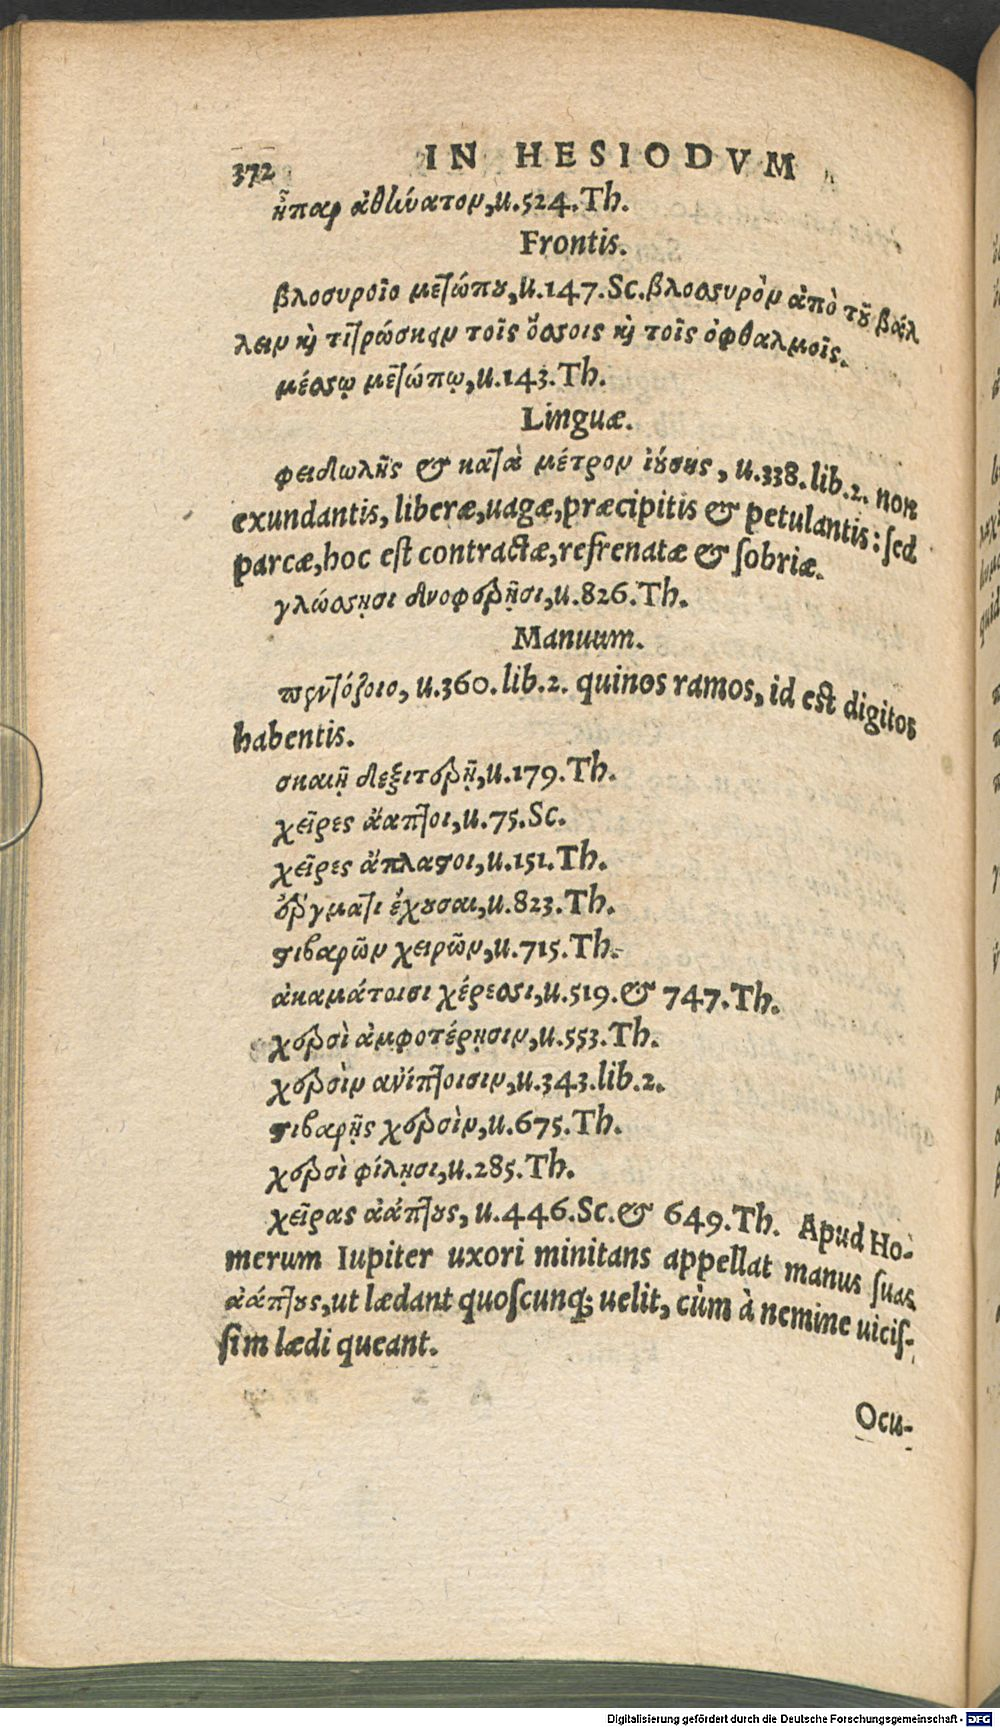 372 IN HESIODVM
ἧπαρ ἀθάνατον, u. 524. Th.
Frontis.
βλοσυροῖο μετώπου, u. 147. Sc. βλοσυρὸν ἀπὸ τοῦ βάλ
λειν καὶ τιτρώσκειν τοῖς ὄσσοις καὶ τοῖς ὀφθαλμοῖς.
μέσσῳ μετώπῳ, u. 143. Th.
Linguæ.
φειδωλῆς & κατὰ μέτρον ἰούσης, u. 338. lib. 2. non
exundantis, liberæ, uagæ, præcipitis & petulantis: sed
parcæ, hoc est contractæ, refrenatæ & sobriæ.
γλώσσῃσι δνοφερῇσι, u. 826. Th.
Manuum.
πεντόζοιο, u. 360. lib. 2. quinos ramos, id est digitos
habentis.
σκαιῇ δεξιτερῇ, u. 179. Th.
χεῖρες ἄαπτοι, u. 75. Sc.
χεῖρες ἄπλαστοι, u. 151. Th.
ἔργμασι ἔχουσαι, u. 823. Th.
στιβαρῶν χειρῶν, u. 715. Th.
ἀκαμάτοισι χέρεσσι, u. 519. & 747. Th.
χερσὶ ἀμφοτέρῃσιν, u. 553. Th.
χερσὶν ἀνίπτοισιν, u. 343. lib. 2.
στιβαρῇς χερσὶν, u. 675. Th.
χερσὶ φίλῃσι, u. 285. Th.
χεῖρας ἀάπτους, u. 446. Sc. & 649. Th. Apud Ho-
merum Iupiter uxori minitans appellat manus suas
ἀάπτους, ut lædant quoscunq; uelit, cùm à nemine uicis-
sim lædi queant.
Ocu-
Digitalisierung gefördert durch die Deutsche Forschungsgemeinschaft - DFG